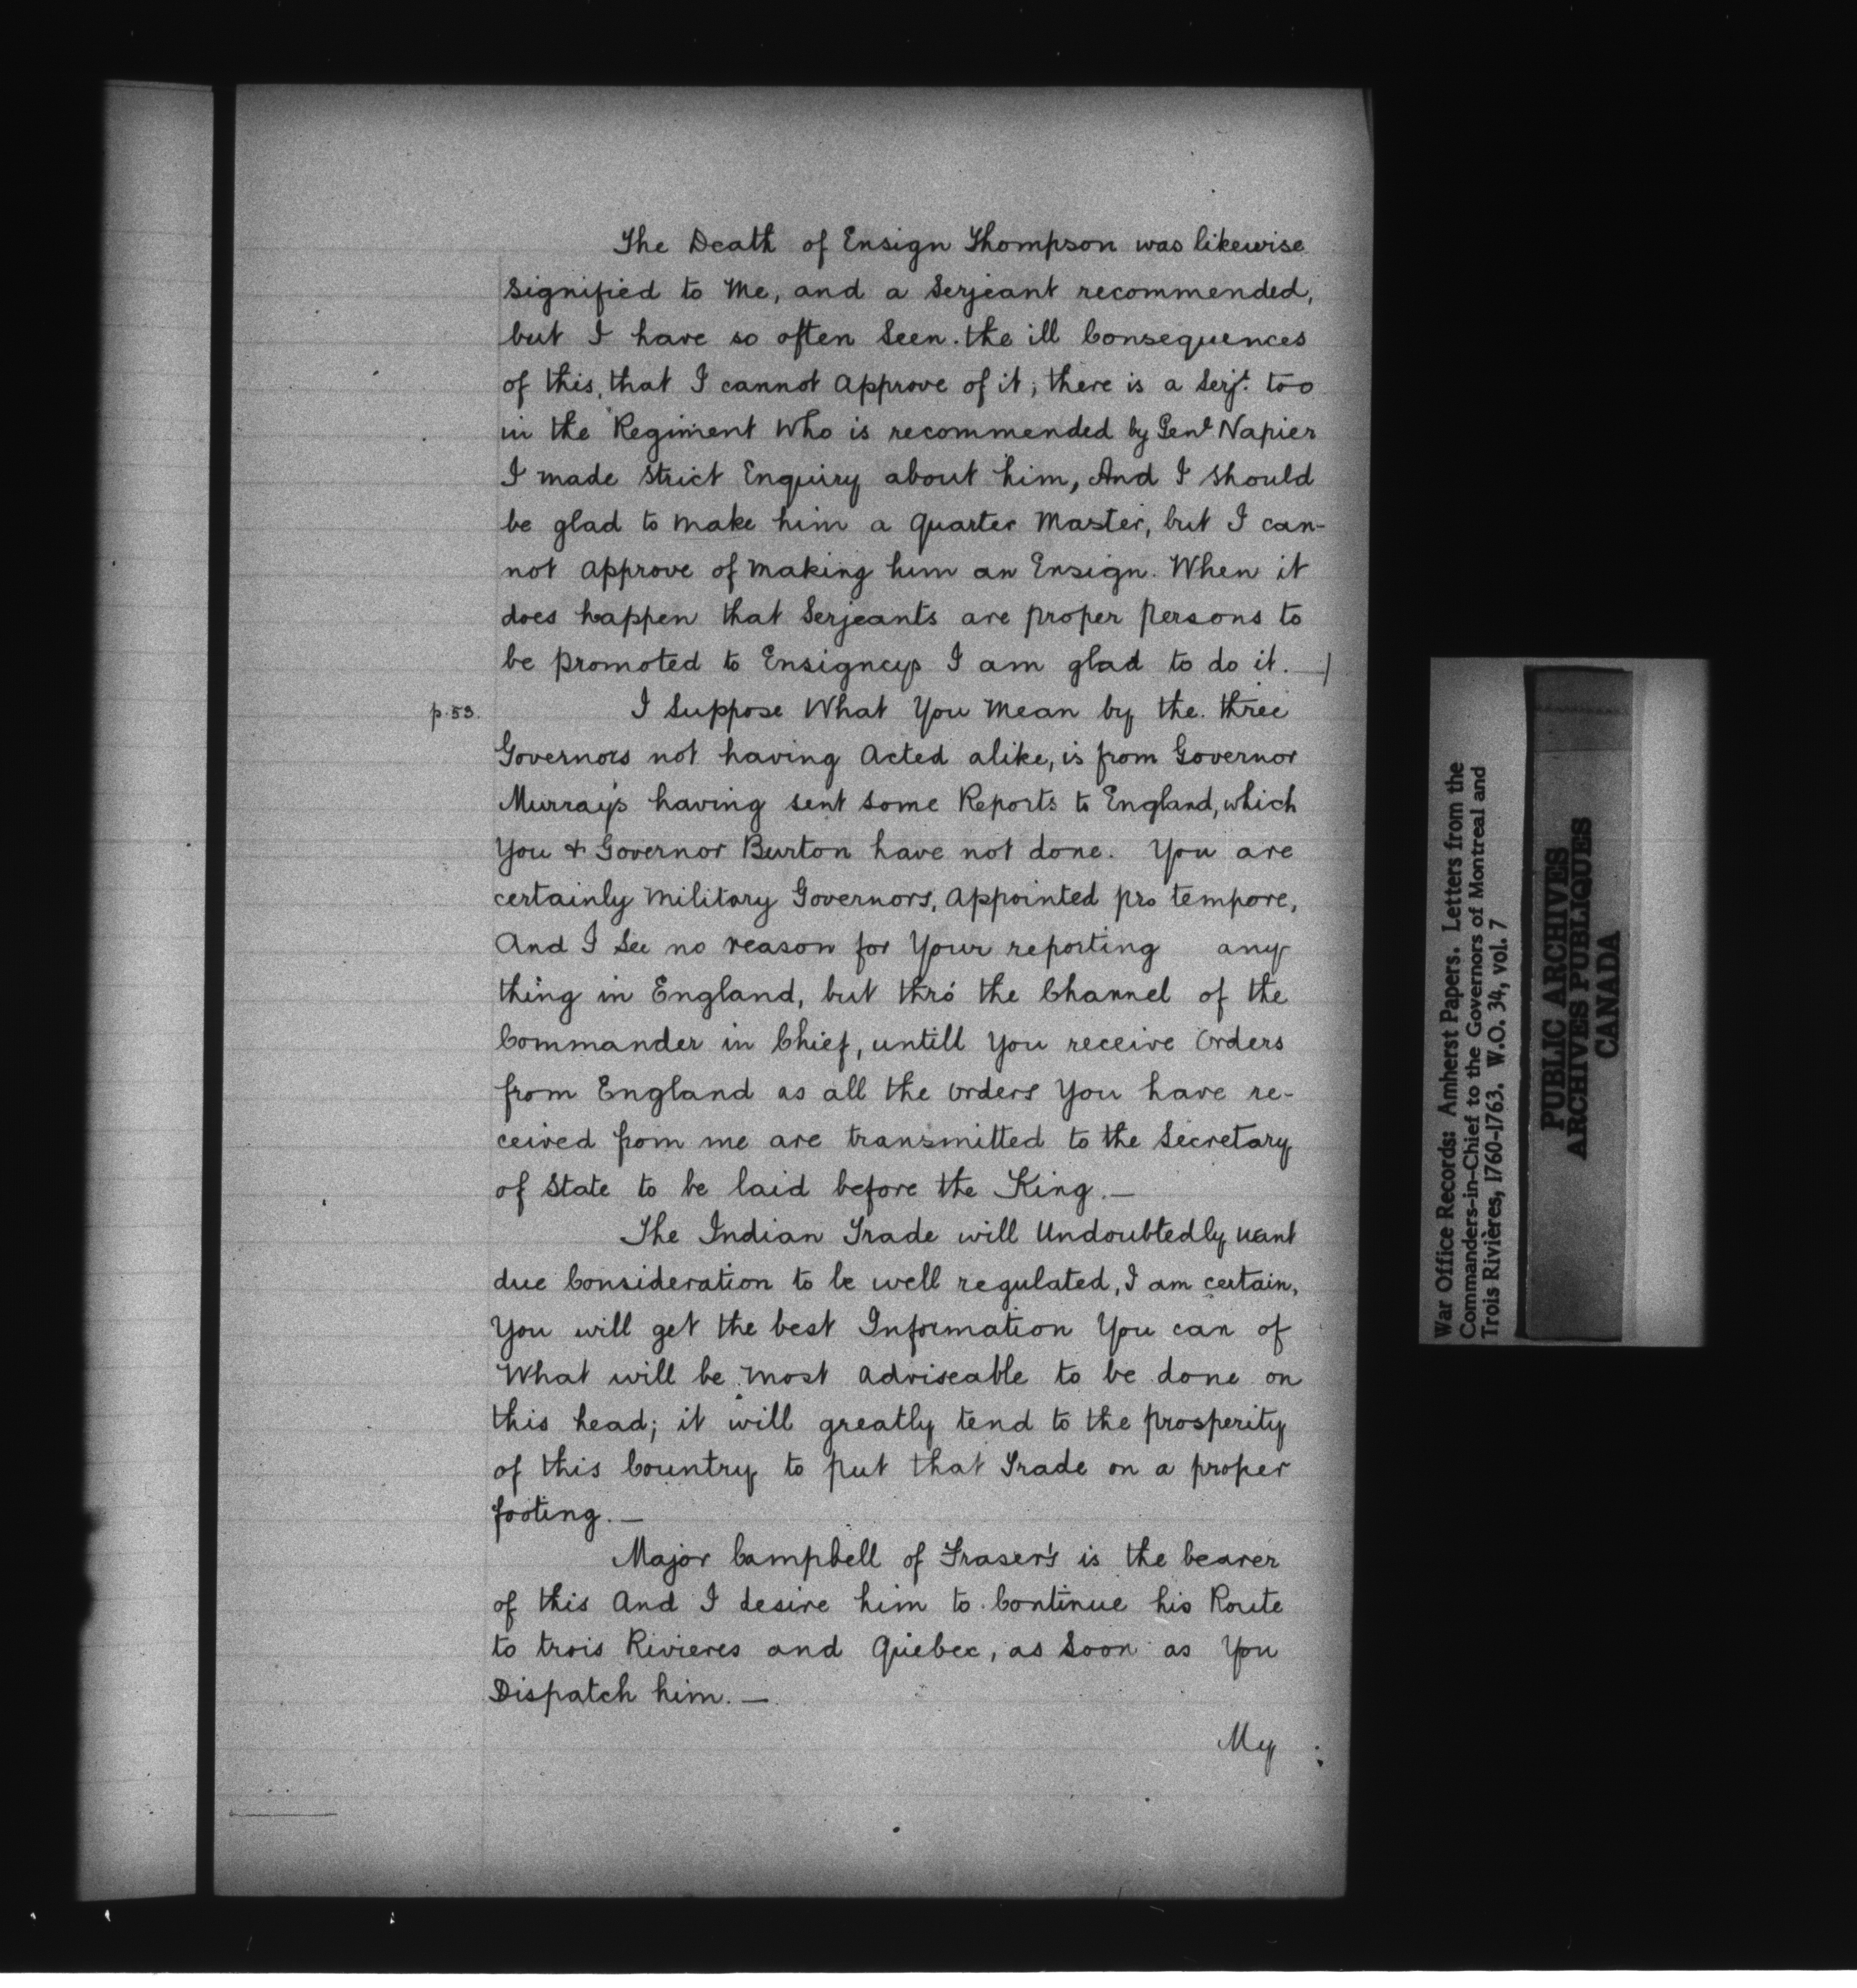 The Death of Ensign Thompson was likewise
Signified to Me, and a Serjeant recommended,
but I have so often Seen the ill Consequences
of this, that I cannot approve of it; there is a Serjt. too
in the Regiment Who is recommended by Genl Napier
I made Strict Enquiry about him, And I Should
be glad to make him a Quarter Master, but I can-
not approve of making him an Ensign. When it
does happen that Serjeants are proper persons to
be promoted to Ensigncys I am glad to do it. —/
p. 53. I Suppose What You Mean by the three
Governors not having Acted alike, is from Governor
Murray's having sent some Reports to England, which
You & Governor Burton have not done. You are
certainly Military Governors, Appointed pro tempore,
And I See no reason for Your reporting any
thing in England, but thro' the Channel of the
Commander in Chief, untill You receive Orders
from England as all the Orders You have re-
ceived from me are transmitted to the Secretary
of State to be laid before the King. —
The Indian Trade will Undoubtedly want
due Consideration to be well regulated, I am certain,
You will get the best Information You can of
What will be most adviseable to be done on
this head; it will greatly tend to the prosperity
of this Country to put that Trade on a proper
footing. —
Major Campbell of Fraser's is the bearer
of this And I desire him to Continue his Route
to trois Rivieres and Quebec, as Soon as You
Dispatch him. —
My
War Office Records: Amherst Papers. Letters from the
Commanders-in-Chief to the Governors of Montreal and
Trois Rivières, 1760-1763. W.O. 34, vol. 7
PUBLIC ARCHIVES
ARCHIVES PUBLIQUES
CANADA